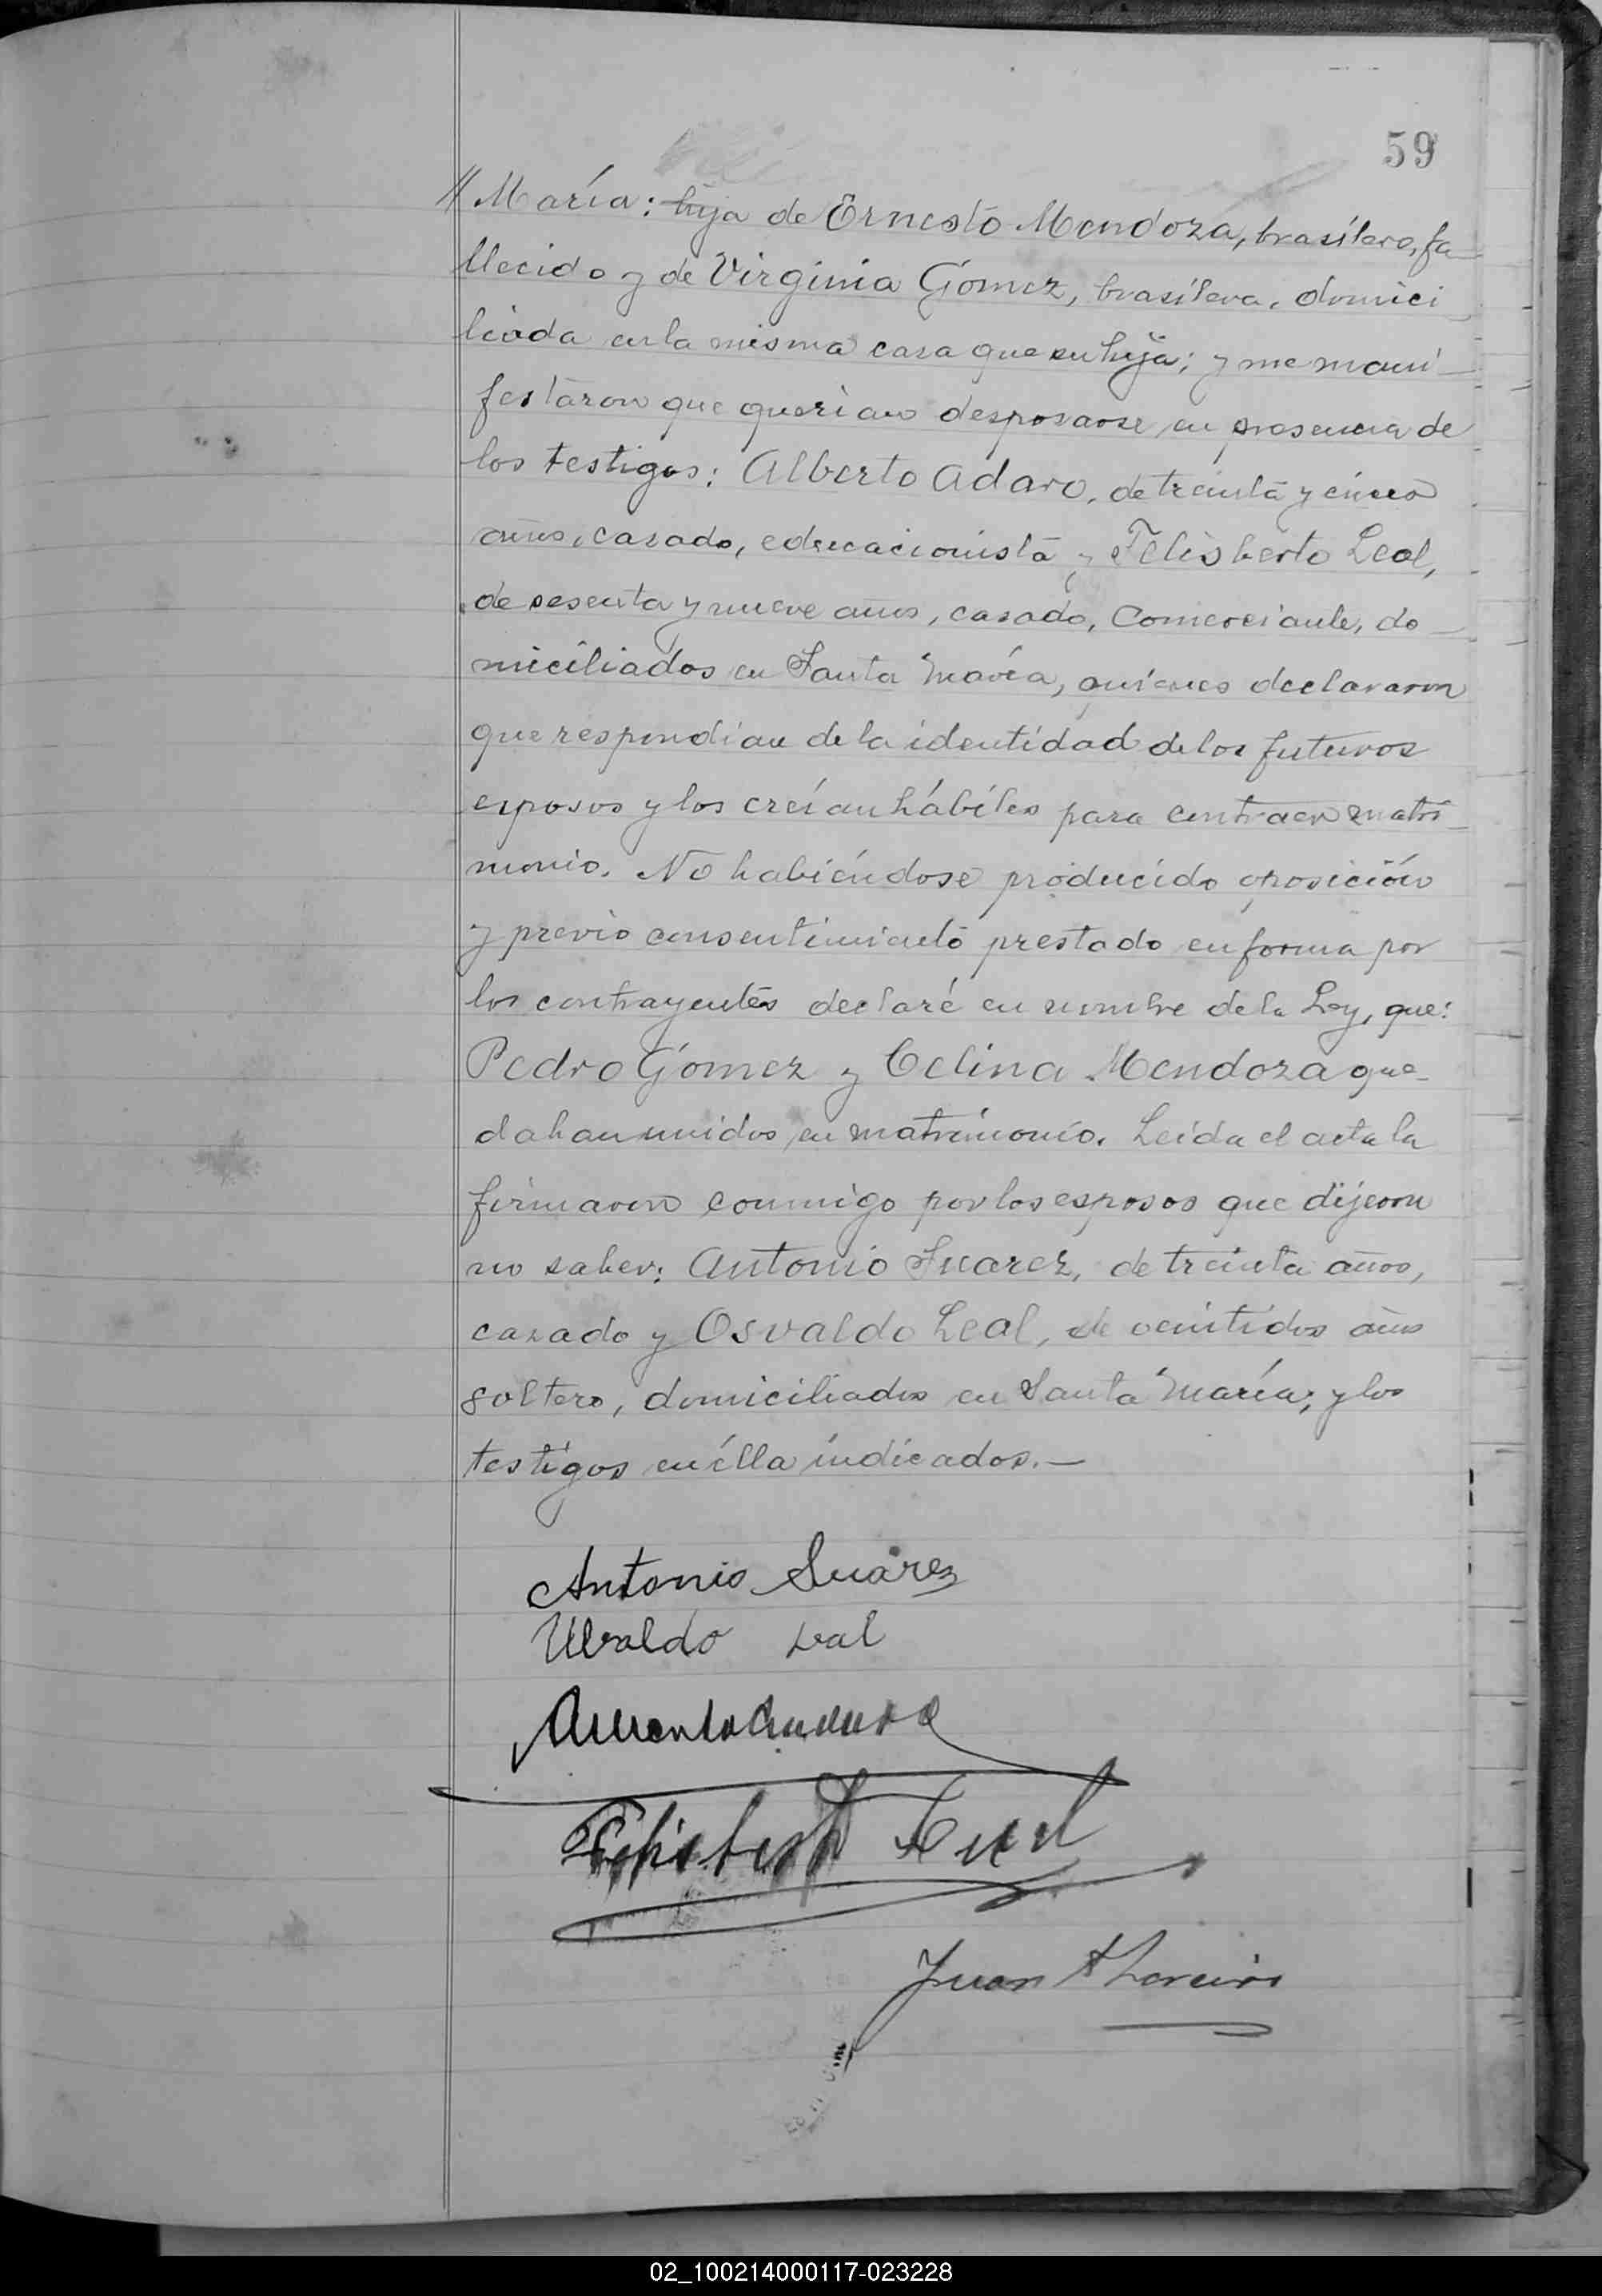 59
// María: hija de Ernesto Mendoza, brasilero, fa-
llecido y de Virginia Gómez, brasilera, domici
liada en la misma casa que su hija; y me mani-
festaron que querian desposarse en presencia de
los testigos: Alberto Adaro, de treinta y cinco
años, casado, educacionista y Felisberto Leal,
de sesenta y nueve años, casado, Comerciante, do-
miciliados en Santa María, quienes declararon
que respondian de la identidad de los futuros
esposos y los creían hábiles para contraer matri-
monio. No habiéndose producido oposición
y previo consentimiento prestado en forma por
los contrayentes declaré en nombre de la Ley, que:
Pedro Gómez y Celina Mendoza que-
daban unidos en matrimonio. Leida el acta la
firmaron conmigo por los esposos que dijeron
no saber: Antonio Suarez, de treinta años,
casado y Osvaldo Leal, de venitidos años
soltero, domiciliados en Santa María; y los
testigos en élla indicados.—
Antonio Suárez
Ubaldo Leal
Felisberto Leal
Juan
02_100214000117-023228